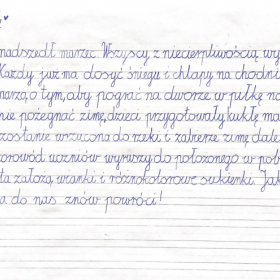 nadszedł marzec. Wszyscy z niecierpliwością wy
Każdy już ma dosyć śniegu i chlapy na chodni
marzą o tym, aby pograć na dworze w piłkę no
nie pożegnać zimę, dzieci przygotowały kukłę ma
zostanie wrzucona do rzeki i zabierze zimę dale
orowód uczniów wyruszy do położonego w pob
ta założą wianki i różnokolorowe sukienki. Jak
a do nas znów powróci!